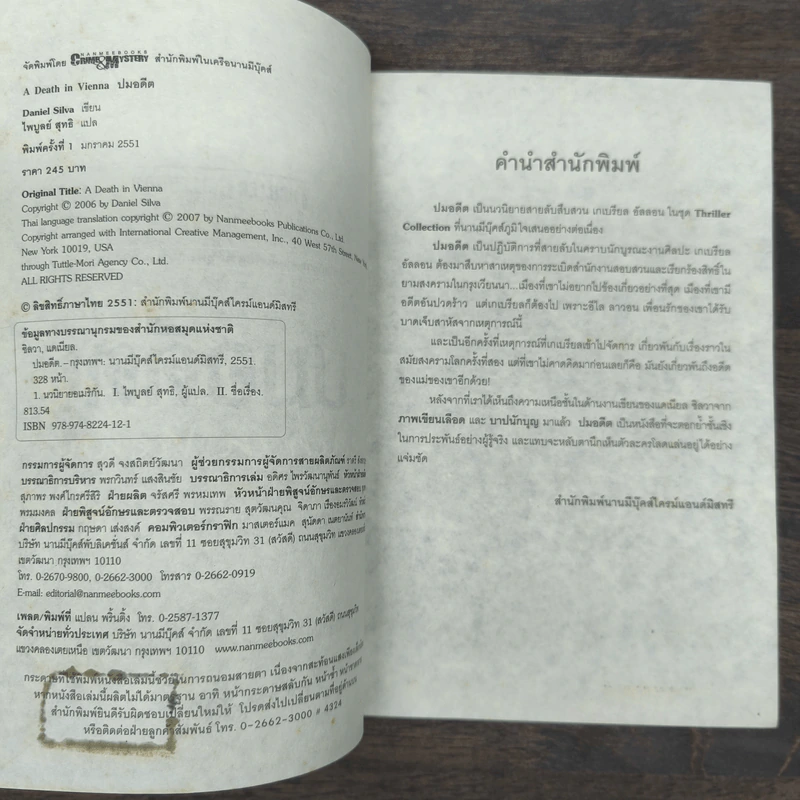 จัดพิมพ์โดย NANMEEBOOKS CRIME & MYSTERY สำนักพิมพ์ในเครือนานมีบุ๊คส์
A Death in Vienna ปมอดีต
Daniel Silva เขียน
ไพบูลย์ สุทธิ แปล
พิมพ์ครั้งที่ 1 มกราคม 2551
ราคา 245 บาท
Original Title: A Death in Vienna
Copyright © 2006 by Daniel Silva
Thai language translation copyright © 2007 by Nanmeebooks Publications Co., Ltd.
Copyright arranged with International Creative Management, Inc., 40 West 57th Street, New
New York 10019, USA
through Tuttle-Mori Agency Co., Ltd.
ALL RIGHTS RESERVED
© ลิขสิทธิ์ภาษาไทย 2551: สำนักพิมพ์นานมีบุ๊คส์ไครม์แอนด์มิสทรี
ข้อมูลทางบรรณานุกรมของสำนักหอสมุดแห่งชาติ
ซิลวา, แดเนียล.
ปมอดีต.--กรุงเทพฯ: นานมีบุ๊คส์ไครม์แอนด์มิสทรี, 2551.
328 หน้า.
1. นวนิยายอเมริกัน. I. ไพบูลย์ สุทธิ, ผู้แปล. II. ชื่อเรื่อง.
813.54
ISBN 978-974-8224-12-1
กรรมการผู้จัดการ สุวดี จงสถิตย์วัฒนา ผู้ช่วยกรรมการผู้จัดการสายผลิตภัณฑ์
บรรณาธิการบริหาร พรกวินทร์ แสงสินชัย บรรณาธิการเล่ม อดิศร ไพรวัฒนานุพันธ์ หัวหน้าฝ่าย
สุภาพร พงศ์ไกรศรีสิริ ฝ่ายผลิต จรัสศรี พรหมเทพ หัวหน้าฝ่ายพิสูจน์อักษรและตรวจสอบ
พรมมงคล ฝ่ายพิสูจน์อักษรและตรวจสอบ พรรณราย สุดวัฒนคุณ จิดาภา เรืองอมรวิวัฒน์
ฝ่ายศิลปกรรม กฤษดา เส่งสงค์ คอมพิวเตอร์กราฟิก มาสเตอร์แมค สุนัดดา
บริษัท นานมีบุ๊คส์พับลิเคชั่นส์ จำกัด เลขที่ 11 ซอยสุขุมวิท 31 (สวัสดี) ถนนสุขุมวิท
เขตวัฒนา กรุงเทพฯ 10110
โทร. 0-2670-9800, 0-2662-3000 โทรสาร 0-2662-0919
E-mail: editorial@nanmeebooks.com
เพลต/พิมพ์ที่ แปลน พริ้นติ้ง โทร. 0-2587-1377
จัดจำหน่ายทั่วประเทศ บริษัท นานมีบุ๊คส์ จำกัด เลขที่ 11 ซอยสุขุมวิท 31 (สวัสดี) ถนนสุขุมวิท
แขวงคลองเตยเหนือ เขตวัฒนา กรุงเทพฯ 10110 www.nanmeebooks.com
กระดาษที่ใช้พิมพ์หนังสือเล่มนี้ช่วยในการถนอมสายตา เนื่องจากสะท้อนแสงเพียง
หากหนังสือเล่มนี้ผลิตไม่ได้มาตรฐาน อาทิ หน้ากระดาษสลับกัน หน้าซ้ำ หน้าขาดหาย
สำนักพิมพ์ยินดีรับผิดชอบเปลี่ยนใหม่ให้ โปรดส่งไปเปลี่ยนตามที่อยู่ด้านบน
หรือติดต่อฝ่ายลูกค้าสัมพันธ์ โทร. 0-2662-3000 # 4324
คำนำสำนักพิมพ์
ปมอดีต เป็นนวนิยายสายลับสืบสวน เกเบรียล อัลลอน ในชุด Thriller
Collection ที่นานมีบุ๊คส์ภูมิใจเสนออย่างต่อเนื่อง
ปมอดีต เป็นปฏิบัติการที่สายลับในคราบนักบูรณะงานศิลปะ เกเบรียล
อัลลอน ต้องมาสืบหาสาเหตุของการระเบิดสำนักงานสอบสวนและเรียกร้องสิทธิ์ใน
ยามสงครามในกรุงเวียนนา...เมืองที่เขาไม่อยากไปข้องเกี่ยวอย่างที่สุด เมืองที่เขามี
อดีตอันปวดร้าว แต่เกเบรียลก็ต้องไป เพราะอีไล ลาวอน เพื่อนรักของเขาได้รับ
บาดเจ็บสาหัสจากเหตุการณ์นี้
และเป็นอีกครั้งที่เหตุการณ์ที่เกเบรียลเข้าไปจัดการ เกี่ยวพันกับเรื่องราวใน
สมัยสงครามโลกครั้งที่สอง แต่ที่เขาไม่คาดคิดมาก่อนเลยก็คือ มันยังเกี่ยวพันถึงอดีต
ของแม่ของเขาอีกด้วย!
หลังจากที่เราได้เห็นถึงความเหนือชั้นในด้านงานเขียนของแดเนียล ซิลวาจาก
ภาพเขียนเลือด และ บาปนักบุญ มาแล้ว ปมอดีต เป็นหนังสือที่จะตอกย้ำชั้นเชิง
ในการประพันธ์อย่างผู้รู้จริง และแทบจะหลับตานึกเห็นตัวละครโลดแล่นอยู่ได้อย่าง
แจ่มชัด
สำนักพิมพ์นานมีบุ๊คส์ไครม์แอนด์มิสทรี